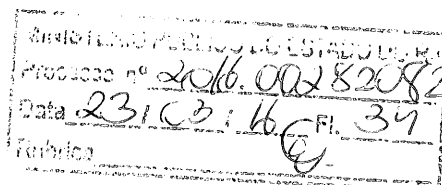 MINISTÉRIO PÚBLICO DO ESTADO DO RJ
Processo nº 2016.00282082
Data 23, 03, 16 Fl. 34
Rubrica